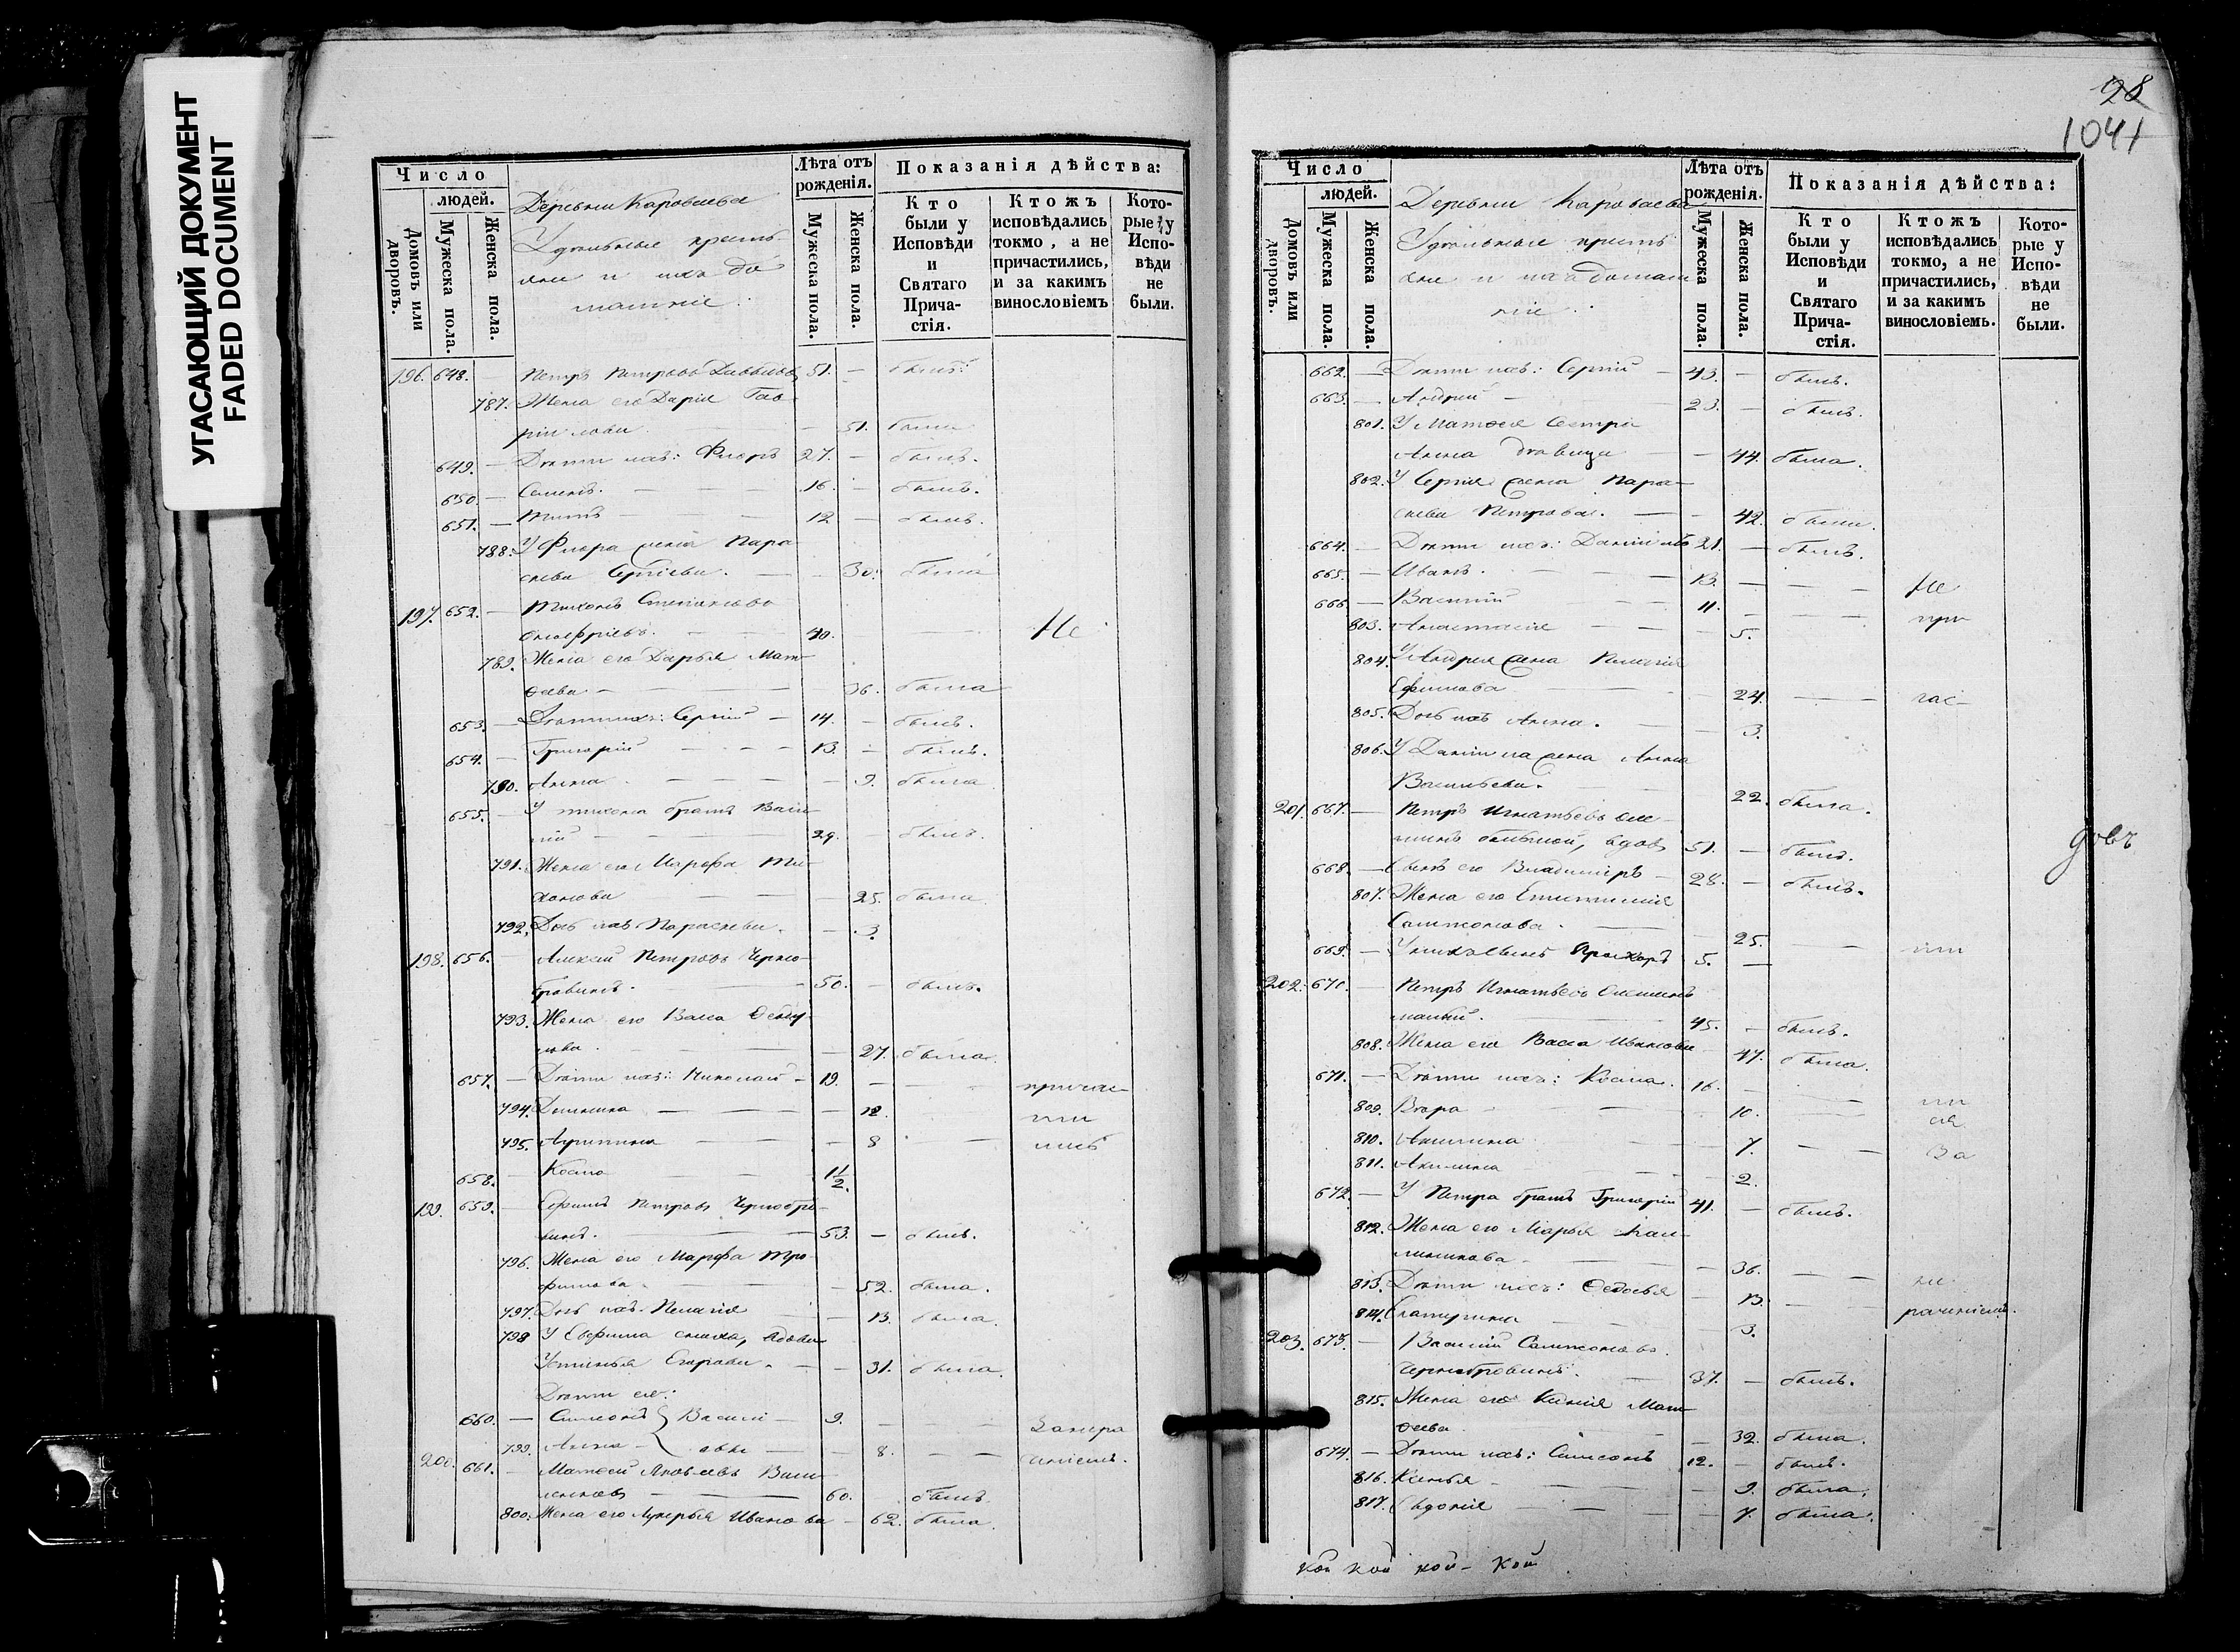 УГАСАЮЩИЙ ДОКУМЕНТ
FADED DOCUMENT
Число
людей.
Домовъ или дворовъ.
Мужеска пола.
Женска пола.
Деревни Караваева
Удѣльные кресть-
яне и ихъ до
машніе.
Лѣта отъ рожденія.
Мужеска пола.
Женска пола.
Показанія дѣйства:
Кто были у Исповѣди и Святаго Прича-стія.
Ктожъ исповѣдались токмо, а не причастились, и за какимъ винословіемъ
Кото-рые у Испо-вѣди не были.
196. 648. — Петръ Петровъ 51. — былъ.
787. Жена его Дарія Гав-
рилова — 51. была
649. — Дѣти ихъ: Флоръ 27. — былъ.
650. — Семенъ. — 16. — былъ.
651. — Титъ — 12 — былъ.
788. У Флора жена Пара-
скева Сергіева. — 30. была
197. 652. — Тихонъ
40. — Не
789. Жена его Дарья Мат-
ѳеева — 36. была
653. — Дѣти ихъ: Сергій — 14. — былъ.
654. — Григорій — 13. — былъ.
790. Анна — 9. была
655. — У Тихона братъ Васи-
лій — 29. — былъ.
791. Жена его Марѳа Ти-
хонова — 25. была
792. Дочь ихъ Параскева. — 3.
198. 656. — Алексѣй Петровъ Черно-
бровинъ. — 50. — былъ.
793. Жена его Васса
27. была
657. — Дѣти ихъ: Николай — 19. — причас-
794. Домника — 12. ти
795. Агрипина — 8 —
658. — Косма — 1 1/2.
199. 659. — Ефимъ Петровъ Чернобро-
винъ. — 53. — былъ.
796. Жена его Марѳа Тро-
фимова — 52. была.
797. Дочь ихъ Пелагія — 13. была.
798 У Ефима сноха, вдова
Устинья Егорова. — 31. была.
Дѣти ея:
660. — Симеонъ } Василі- 9. —
799. Анна — } евы — 8. —
200. 661. — Матѳей Яковлевъ
60. былъ.
800. Жена его Лукерья Иванова — 62. была.
28
1041
Число
людей.
Домовъ или дворовъ.
Мужеска пола.
Женска пола.
Деревни Караваева
Удѣльные кресть
яне и ихъ домаш
ніе.
Лѣта отъ рожденія.
Мужеска пола.
Женска пола.
Показанія дѣйства:
Кто были у Исповѣди и Святаго Прича-стія.
Ктожъ исповѣдались токмо, а не причастились, и за какимъ винословіемъ.
Кото-рые у Испо-вѣди не были.
662. — Дѣти ихъ: Сергій — 43. — былъ.
663. — Андрей — 23. — былъ.
801. У Матѳея сестра
Анна дѣвица — 44. была.
802. У Сергія жена Пара-
скева Петрова. — 42. была.
664. — Дѣти ихъ: Даніилъ 21. — былъ.
665. — Иванъ. — 13. — Не
666. — Василій — 11. — при
803. Анастасія — 5.
804. У Андрея жена Пелагія
Ефимова — 24. — час-
805. Дочь ихъ Анна. — 3.
806. У Даніила жена Анна
Васильева. 22. была.
201. 667. — Петръ Игнатьевъ
большой, вдовъ 51. — былъ.
668. — Сынъ его Владиміръ — 28. — былъ.
807. Жена его
Самсонова. — 25. — ти
669. — У нихъ сынъ Прохоръ 5. —
202. 670. — Петръ Игнатьевъ
малый. — 45. — былъ.
808. Жена его Васса Иванова 47. была.
671. — Дѣти ихъ: Косма. 16. —
809. Вѣра — 10. —
810. Акилина — 7. — За
811. Акилина — 2.
672. — У Петра братъ Григорій 41. — былъ.
812. Жена его Марья Кал-
линикова — 36. —
813. Дѣти ихъ: Ѳедосья — 13. —
814. Екатерина — 3.
203. 673. — Василій Самсоновъ
Чернобровинъ. — 37. — былъ.
815. Жена его Ксенія Мат-
ѳеева. — 32. была.
674. — Дѣти ихъ: Самсонъ 12. — былъ.
816. Ксенья — 9. была.
817. Евдокія — 7. была.
кой кой кой- кой